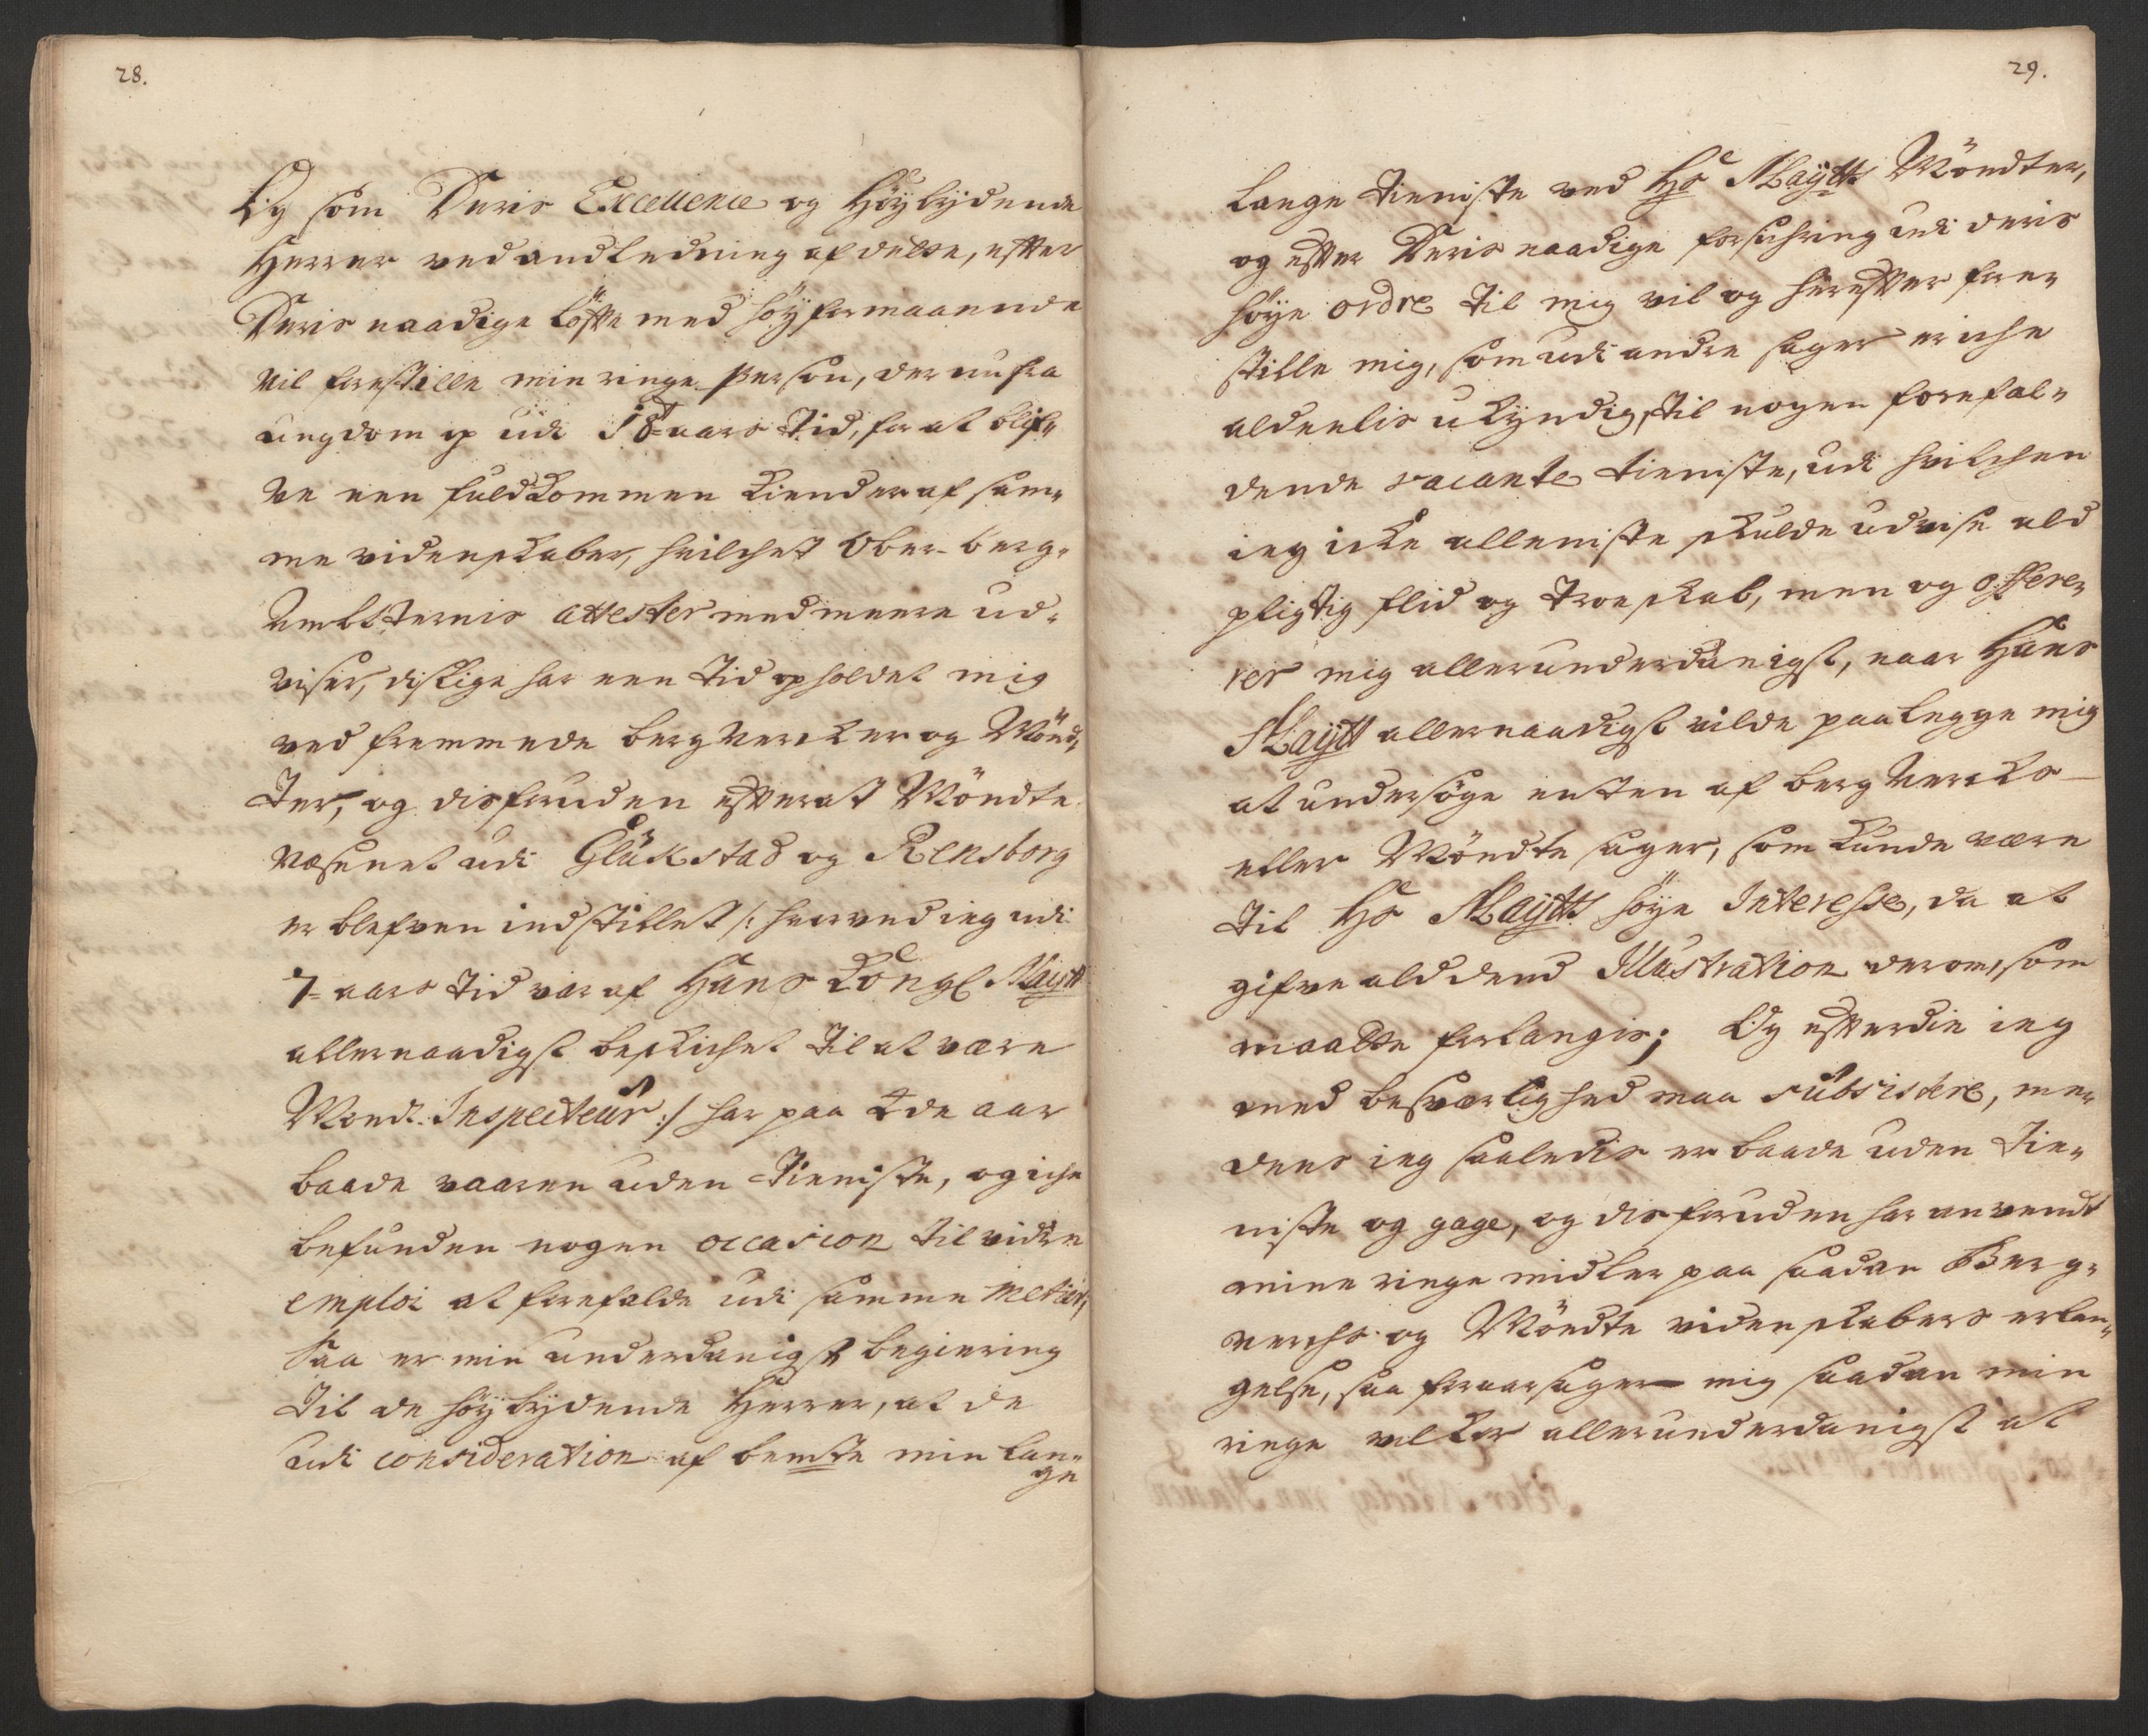 28.
Og som Deris Excellence og Höybÿdende
Herrer ved andledning af dette, efter
Deris naadige löfte med höyformaaende
vil forestille min ringe Person, der nu fra
ungdom op udi 18 aars Tid, for at blif-
ve een fuldkommen kiender af sam-
me videnskaber, hvilchet Ober-berg-
Ambtternis attester med meere ud-
viser, dislige har een tid opholdet mig
ved fremmede bergverker og Mönd-
ter, og disforuden efterat Möndte
væsenet udi Glükstad og Rensborg
er blefven indstillet /: hvorved ieg udi
7 aars tid var af Hans Kongl Maÿtt
allernaadigst beskichet til at være
Mondt Inspecteur :/ har paa 2de aar
baade vaaren uden tieniste, og iche
befunden nogen occasion til vider
emploi at forefalde udi samme metier,
Saa er min underdanigst begiering
til de höybÿdende Herrer, at de
udi consideration af bemte min lan-
ge
29.
lange tieniste ved Hs Maÿtts Möndter,
og efter Deris naadige forsichring udi deris
höÿe ordre til mig vil og herefter fore-
stille mig, som udi andre sager er iche
aldenlis ukÿndig, til nogen forefal-
dende vacante tieniste, udi hvilchen
ieg icke alleniste skulde udvise ald
pligtig flid og troeskab, men og offere-
rer mig allerunderdanigst, naar Hans
Maÿtt allernaadigst vilde paalegge mig
at undersöge enten af berg Vercks
eller Möndte sager, som kunde være
til Hs Maÿtts höÿe Interesse, da at
gifve ald dend Illustration derom, som
maatte forlangis; Og efterdie ieg
med besværlighed maa subsistere, me-
dens ieg saaledis er baade uden tie-
niste og gage, og disforuden har anvendt
mine ringe midler paa saadan Berg-
verchs og Möndte videnskabers erlan-
gelse, saa foraarsager mig saadan min
ringe vilkor allerunderdanigst at